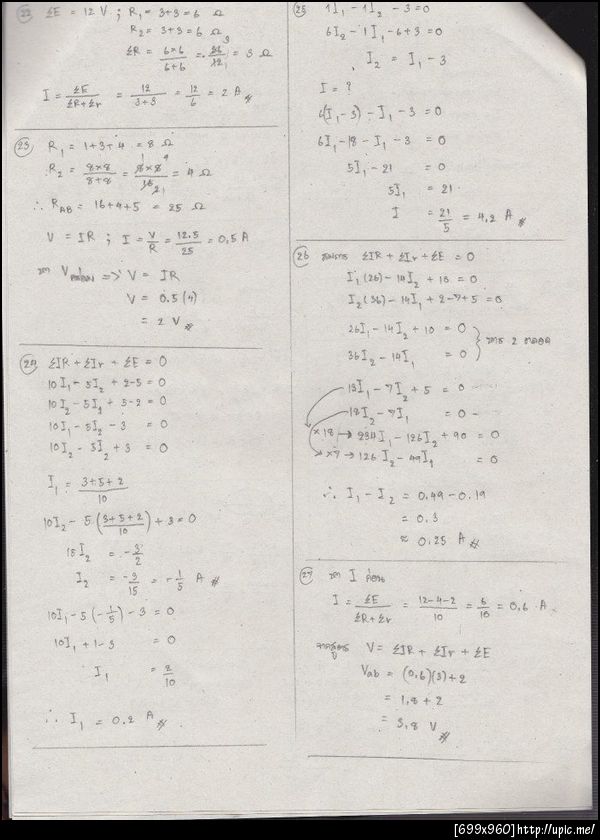 22 ΣE = 12 V ; R₁ = 3+3 = 6 Ω
R₂ = 3+3 = 6 Ω
ΣR = 6×6/6+6 = 36/12 = 3 Ω
I = ΣE/ΣR+Σr = 12/3+3 = 12/6 = 2 A
23 R₁ = 1+3+4 = 8 Ω
R₂ = 8×8/8+8 = 8×8/16 = 4 Ω
∴ R_AB = 16+4+5 = 25 Ω
V = IR ; I = V/R = 12.5/25 = 0.5 A
หา V => V = IR
V = 0.5(4)
= 2 V
24 ΣIR + ΣIr + ΣE = 0
10I₁ - 5I₂ + 2-5 = 0
10I₂ - 5I₁ + 5-2 = 0
10I₁ - 5I₂ - 3 = 0
10I₂ - 5I₂ + 3 = 0
I₁ = 3+5+2/10
10I₂ - 5(3+5+2/10) + 3 = 0
15I₂ = -3/2
I₂ = -3/15 = -1/5 A
10I₁ - 5(-1/5) - 3 = 0
10I₁ + 1-3 = 0
I₁ = 2/10
∴ I₁ = 0.2 A
25 1I₁ - 1I₂ - 3 = 0
6I₂ - 1I₁ - 6 + 3 = 0
I₂ = I₁ - 3
I = ?
6(I₁-3) - I₁ - 3 = 0
6I₁ - 18 - I₁ - 3 = 0
5I₁ - 21 = 0
5I₁ = 21
I = 21/5 = 4.2 A
26 สมการ ΣIR + ΣIr + ΣE = 0
I₁(26) - 14I₂ + 10 = 0
I₂(36) - 14I₁ + 2-7+5 = 0
26I₁ - 14I₂ + 10 = 0
36I₂ - 14I₁ = 0 } หาร 2 ตลอด
13I₁ - 7I₂ + 5 = 0
18I₂ - 7I₁ = 0
×18 → 234I₁ - 126I₂ + 90 = 0
×7 → 126I₂ - 49I₁ = 0
∴ I₁ - I₂ = 0.49 - 0.19
= 0.3
≈ 0.25 A
27 หา I ก่อน
I = ΣE/ΣR+Σr = 12-4-2/10 = 6/10 = 0.6 A
จากสูตร V = ΣIR + ΣIr + ΣE
Vab = (0.6)(3)+2
= 1.8 + 2
= 3.8 V
[699x960]http://upic.me/